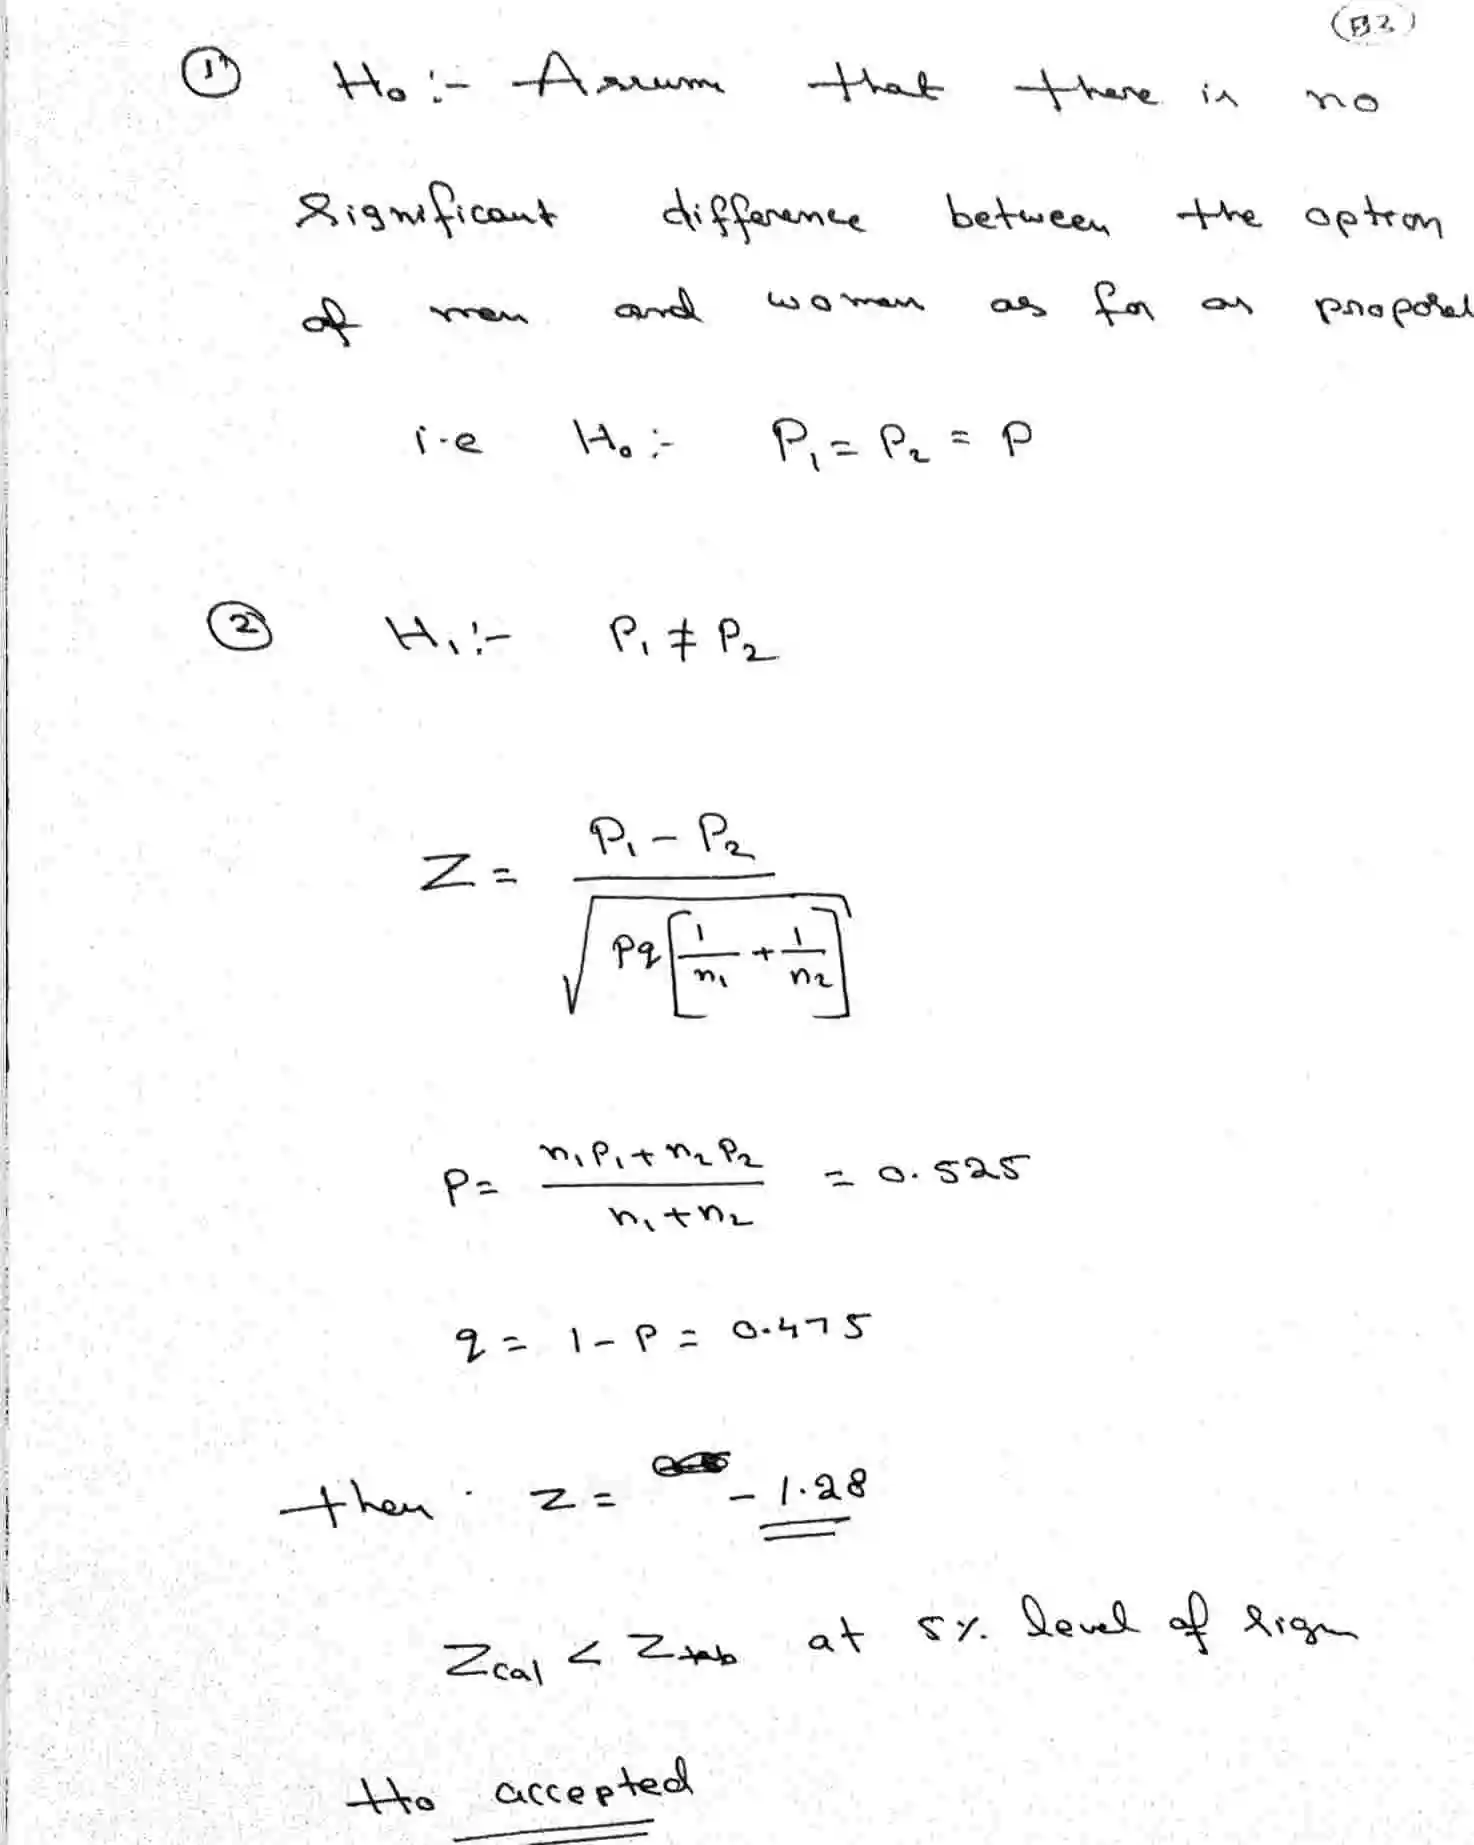 (B3)
① H₀ :- Assum that there is no
Significant difference between the option
of men and women as for as proposal
i.e H₀ :- P₁ = P₂ = P
② H₁ :- P₁ ≠ P₂
Z = (P₁ - P₂) / √(pq[1/n₁ + 1/n₂])
P = (n₁P₁ + n₂P₂) / (n₁ + n₂) = 0.525
q = 1 - P = 0.475
then Z = - 1.28
Zcal < Ztab at 5% level of sign
H₀ accepted